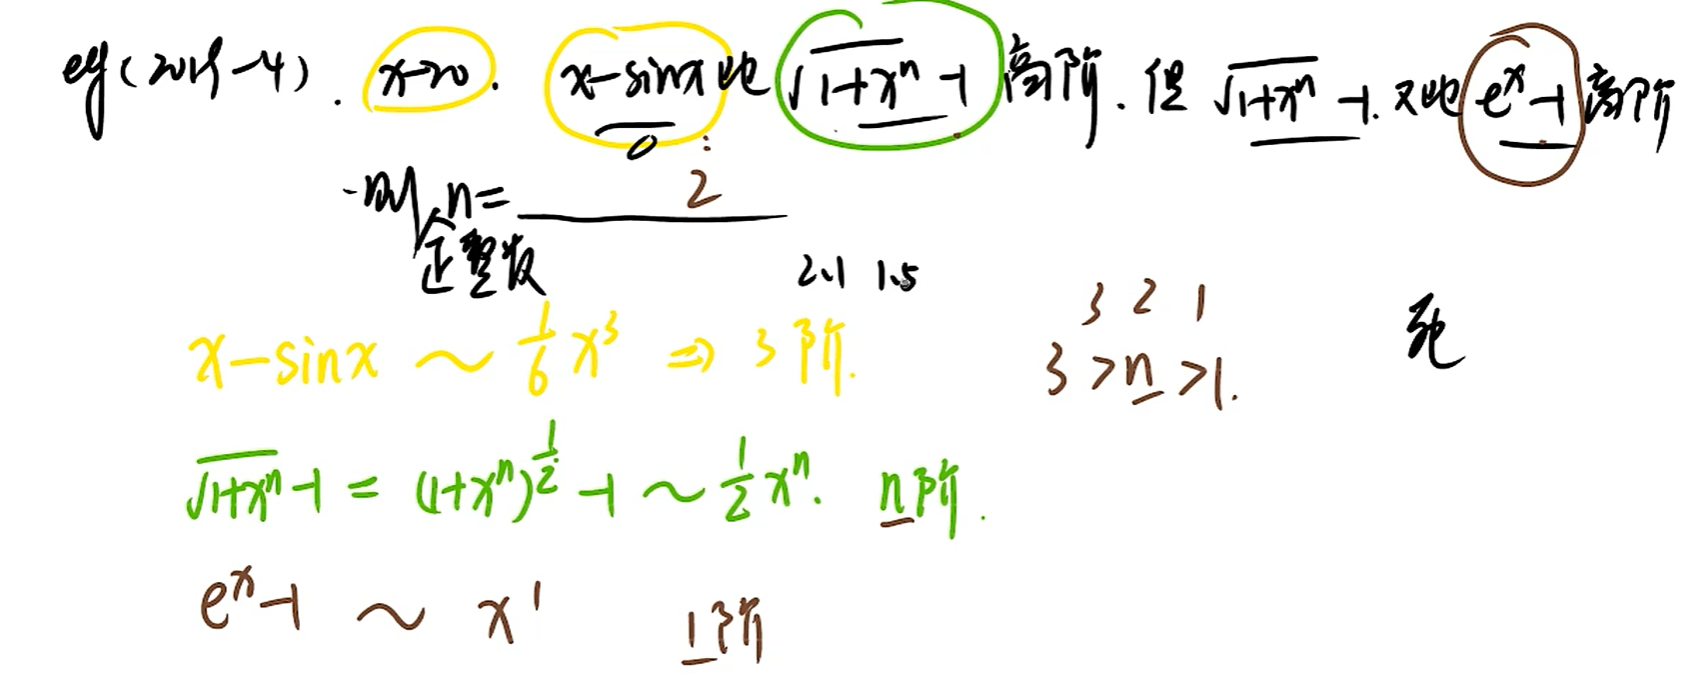 eg(2019-4). x→0. x-sinx比√(1+xⁿ) -1高阶.但 √(1+xⁿ) -1.又比eˣ-1高阶
0
则 n= 2
正整数
2.1 1.5
3 2 1
x-sinx ~ 1/6 x³ ⇒ 3阶.
3>n>1.
√(1+xⁿ) -1 = (1+xⁿ)^(1/2) -1 ~ 1/2 xⁿ. n阶.
eˣ-1 ~ x¹ 1阶